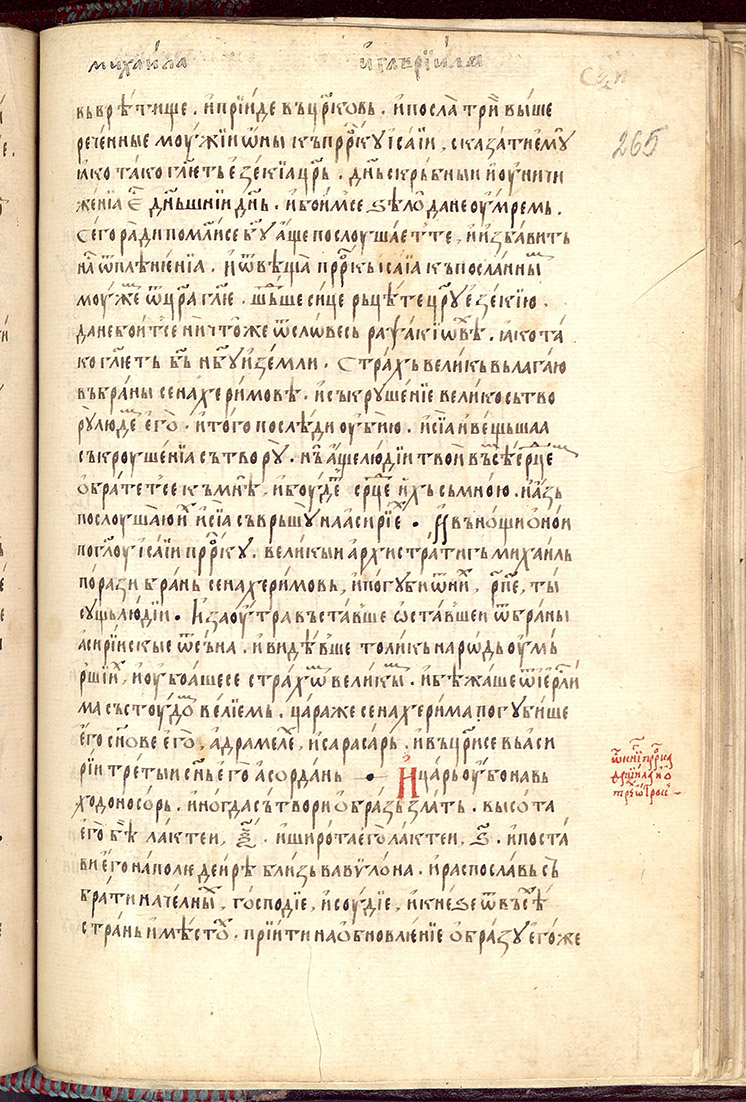 михаила и гаврїила
265
вьврѣтище. и прїиде въ цр҃ковь. и посла три выше
реченные моужїи ѡны къ прⷪ҇рку исаїи, сказати емꙋ
ꙗко тако гл҃еть езекїа цр҃ь. дн҃ь скрьбныи и оуничи
женїа е҇ дн҃ьшнїи дн҃ь. и боимсе ѕѣлѡ да не оумремь.
Сего ради помлисе бг҃ꙋ аще послоушает те, и избавить
на ѿ плѣненїа. и ѿвѣща прⷪ҇ркь исаїа къ посланны
моуже ѿ цр҃а гл҃ю. сице рьцѣте цр҃ꙋ езекїю.
да не боитсе ничтоже ѿ словесь рапсакїѡвѣ. ꙗко та
ко гл҃еть бг҃ь нб҃ꙋ и земли. Страхь великь вьлагаю
въ браны сенахеримовѣ. и съкрушенїе велико сьтво
рꙋ людеⷨ его. и того послѣди оубїю. и сїа и вещьшаа
съкроушенїа сътворꙋ. нѫ аще людїи твои въсѣⷨ срⷣцеⷨ
обрате тсе къ мнѣ, и боудеⷮ срⷣце ихъ съ мною. и азь
послоушаю иⷯ и сїа сьврьшꙋ на асирїе. Въ нощи онои
по гл҃оу исаїи прⷪ҇ркꙋ. великыи архистратигь михаиль
порази брань сенахеримовь, и погуби ѿ ниⷯ, р҃п҃е, ты
сущь людїи. И заоутра въставше ѡставшеи ѿ браны
асирїискые ѿ съна. и видѣвше толикь народь оумь
ршїиⷯ, и оубоашесе страхѡⷨ великыⷨ. и бѣжаше ѿ їерⷭ҇ли
ма съ стоудоⷨ велїемь. цара же сенахерима погубише
его сн҃ове его, адрамелеⷯ, и сарасарь. и въцр҃исе вь аси
рїи третыи сн҃ь его асордань — И царь оубо навь
ходоносорь. иногда сътвори образь злать. высота
его бѣ лактеи, ѯ҃. и широта его лактеи, ѕ҃. и поста
ви его на поле деирѣ близь вавѵлона. и распославь съ
брати начелныⷯ, господїе, и соудїе, и кнеѕе ѿ въсѣⷯ
странь и мѣстоⷯ. прїити на обновленїе образꙋ егоже